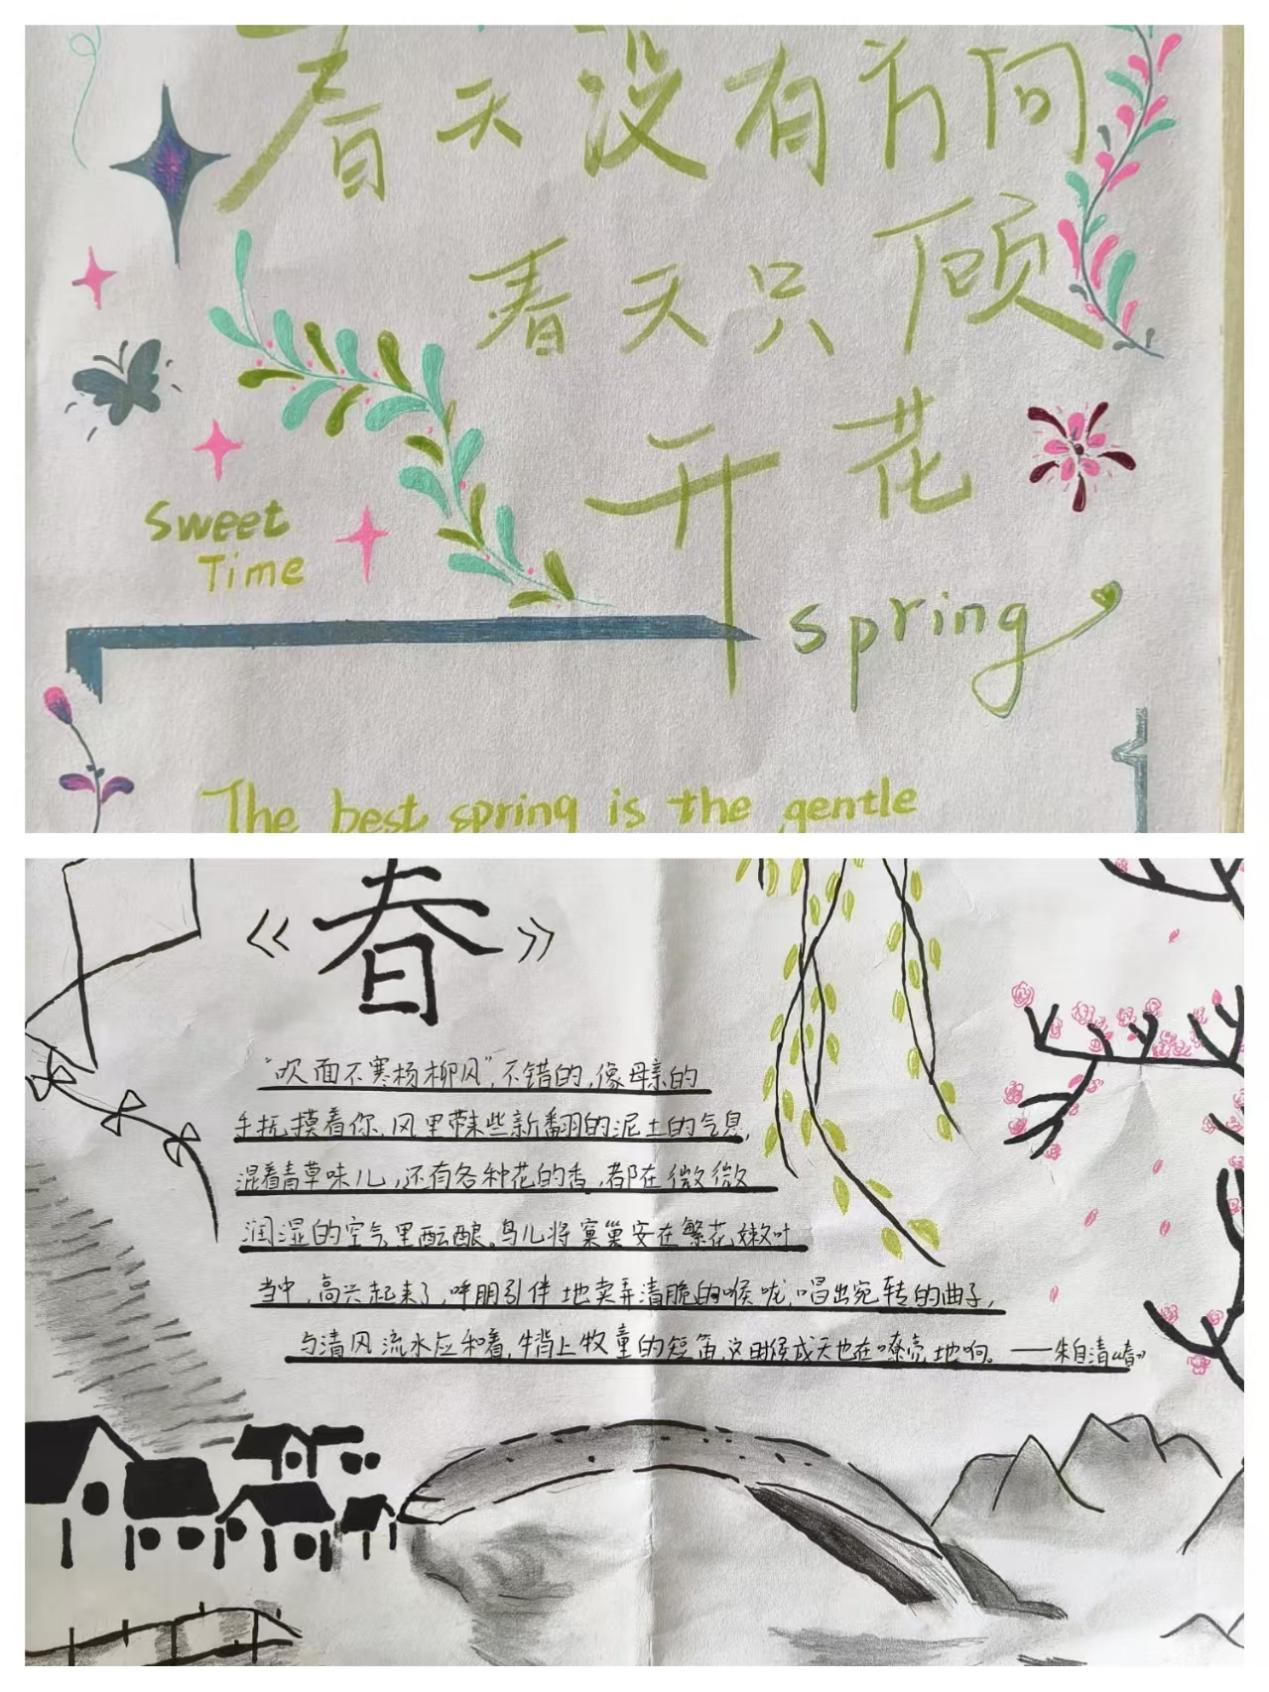 春天没有方向
春天只顾
开花
Sweet
Time
spring
The best spring is the gentle
《春》
“吹面不寒杨柳风”,不错的,像母亲的
手抚摸着你,风里带来些新翻的泥土的气息,
混着青草味儿,还有各种花的香,都在微微
润湿的空气里酝酿。鸟儿将窠巢安在繁花嫩叶
当中,高兴起来了,呼朋引伴地卖弄清脆的喉咙,唱出宛转的曲子,
与清风流水应和着,牛背上牧童的短笛,这时候成天也在嘹亮地响。——朱自清《春》